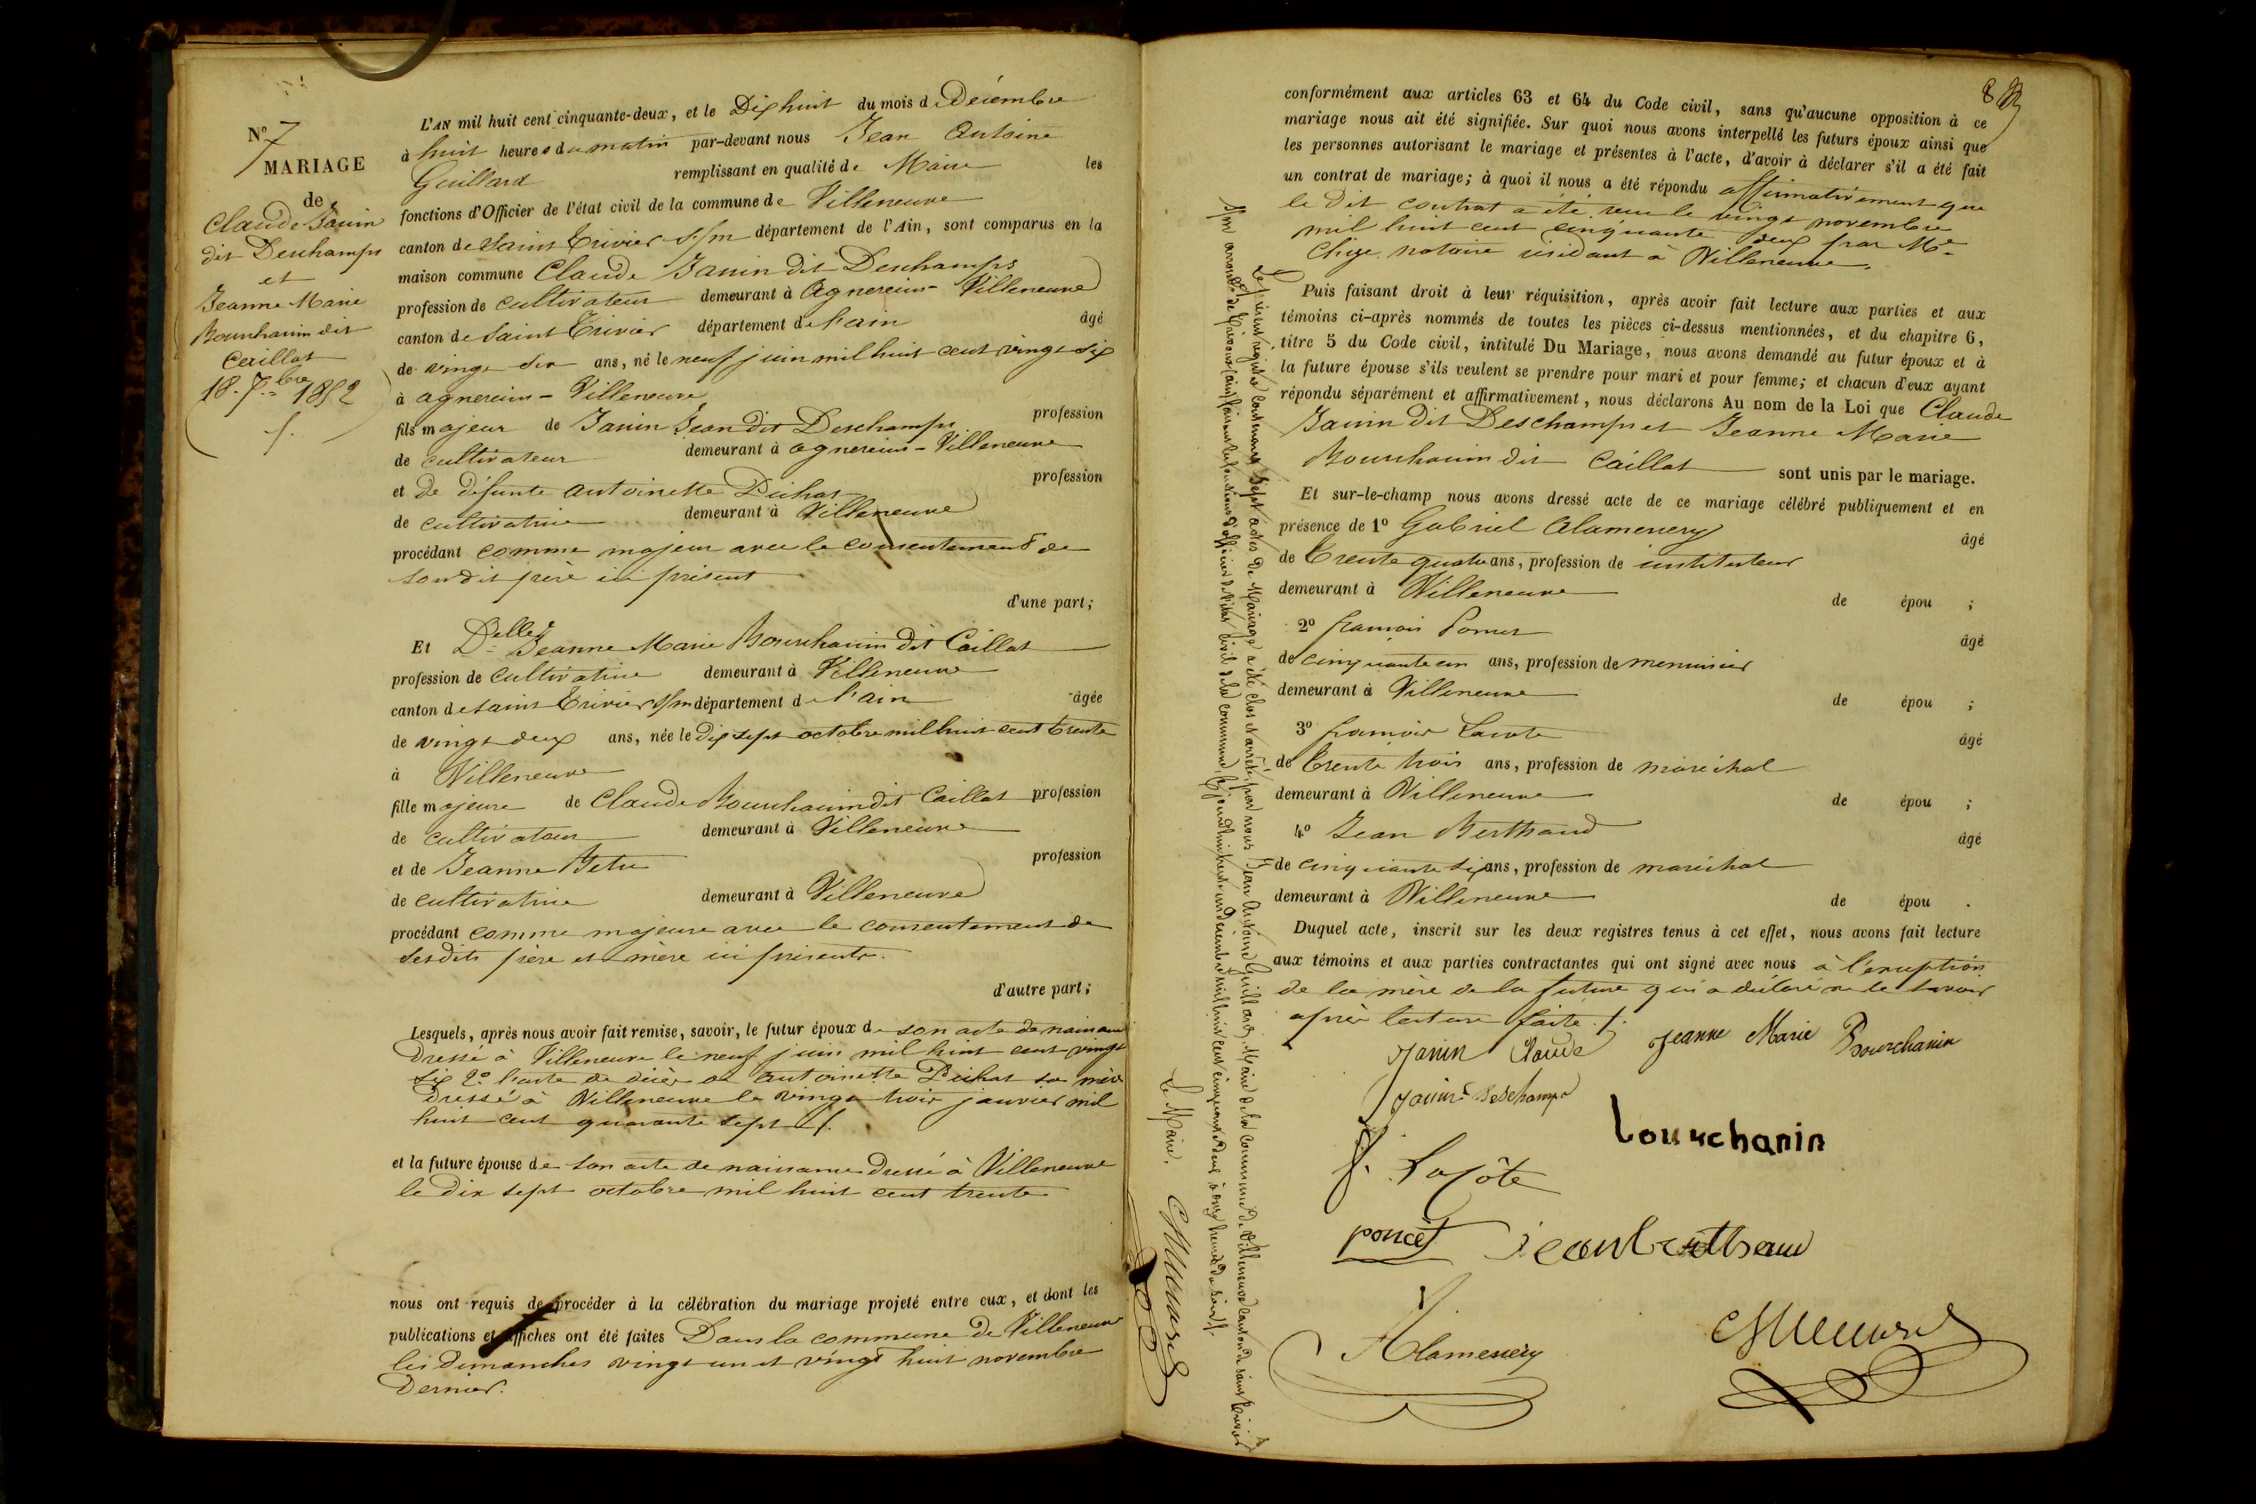 N.º 7
MARIAGE
de
Claude Janin
dit Deschamps
et
Jeanne Marie
Bourchanin dit
Caillat
18. Xbre 1852
L'AN mil huit cent cinquante-deux, et le Dix huit du mois de Décembre
à huit heures du matin par-devant nous Jean Antoine
Guillard remplissant en qualité de Maire les
fonctions d'Officier de l'état civil de la commune de Villeneuve
canton de Saint Trivier s/m département de l'Ain, sont comparus en la
maison commune Claude Janin dit Deschamps
profession de cultivateur demeurant à Agnereins-Villeneuve
canton de Saint Trivier département de l'ain âgé
de vingt six ans, né le neuf juin mil huit cent vingt six
à agnereins-Villeneuve
fils majeur de Janin Jean dit Deschamps profession
de cultivateur demeurant à agnereins-Villeneuve
et de défunte antoinette Pichat profession
de cultivatrice demeurant à Villeneuve
procédant comme majeur avec le consentement de
son dit père ici présent
d'une part;
Et Delle Jeanne Marie Bourchanin dit Caillat
profession de cultivatrice demeurant à Villeneuve
canton de saint Trivier s/m département de l'ain âgée
de vingt deux ans, née le dix sept octobre mil huit cent trente
à Villeneuve
fille majeure de Claude Bourchanin dit Caillat profession
de cultivateur demeurant à Villeneuve
et de Jeanne profession
de cultivatrice demeurant à Villeneuve
procédant comme majeure avec le consentement de
ses dits père et mère ici présents.
d'autre part;
Lesquels, après nous avoir fait remise, savoir, le futur époux de son acte de naissance
dressé à Villeneuve le neuf juin mil huit cent vingt
six 2º l'acte de décès de antoinette Pichat sa mère
dressé à Villeneuve le vingt trois janvier mil
huit cent quarante sept ./.
et la future épouse de son acte de naissance dressé à Villeneuve
le dix sept octobre mil huit cent trente
nous ont requis de procéder à la célébration du mariage projeté entre eux, et dont les
publications et affiches ont été faites Dans la commune de Villeneuve
les dimanches vingt un et vingt huit novembre
dernier.
8
conformément aux articles 63 et 64 du Code civil, sans qu'aucune opposition à ce
mariage nous ait été signifiée. Sur quoi nous avons interpellé les futurs époux ainsi que
les personnes autorisant le mariage et présentes à l'acte, d'avoir à déclarer s'il a été fait
un contrat de mariage; à quoi il nous a été répondu affirmativement que
le dit contrat a été reçu le vingt novembre
mil huit cent cinquante deux par Me
notaire résidant à Villeneuve.
Puis faisant droit à leur réquisition, après avoir fait lecture aux parties et aux
témoins ci-après nommés de toutes les pièces ci-dessus mentionnées, et du chapitre 6,
titre 5 du Code civil, intitulé Du Mariage, nous avons demandé au futur époux et à
la future épouse s'ils veulent se prendre pour mari et pour femme; et chacun d'eux ayant
répondu séparément et affirmativement, nous déclarons Au nom de la Loi que Claude
Janin dit Deschamps et Jeanne Marie
Bourchanin dit Caillat sont unis par le mariage.
Et sur-le-champ nous avons dressé acte de ce mariage célébré publiquement et en
présence de 1º Gabriel Alamercery âgé
de Trente quatre ans, profession de instituteur
demeurant à Villeneuve de épou ;
2º françois Poncet âgé
de cinquante un ans, profession de menuisier
demeurant à Villeneuve de épou ;
3º françois Lacote âgé
de trente trois ans, profession de maréchal
demeurant à Villeneuve de épou ;
4º Jean Berthaud âgé
de cinquante six ans, profession de maréchal
demeurant à Villeneuve de épou .
Duquel acte, inscrit sur les deux registres tenus à cet effet, nous avons fait lecture
aux témoins et aux parties contractantes qui ont signé avec nous à l'exception
de la mère de la future qui a déclaré ne le savoir
après lecture faite ./.
Janin Claude Jeanne Marie Bourchanin
Janin Deschamps
bourchanin
f. Lacôte
poncet
Le présent registre contenant Sept actes de Mariage a été clos et arrêté par nous Jean Antoine Guillard, Maire de la commune de Villeneuve canton de saint Trivier
s/m arrondt de Trevoux (ain) faisant les fonctions d'officier de l'état civil de la commune, aujourd'hui trente un décembre mil huit cent cinquante deux à onze heures du soir ./.
Le Maire,